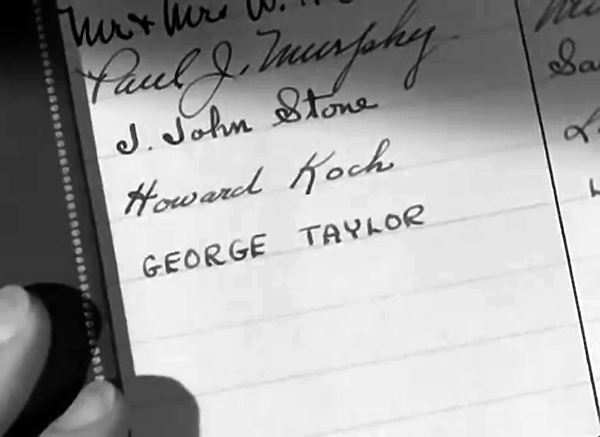 Mr & Mrs W.
Paul J. Murphy
J. John Stone
Howard Koch
GEORGE TAYLOR